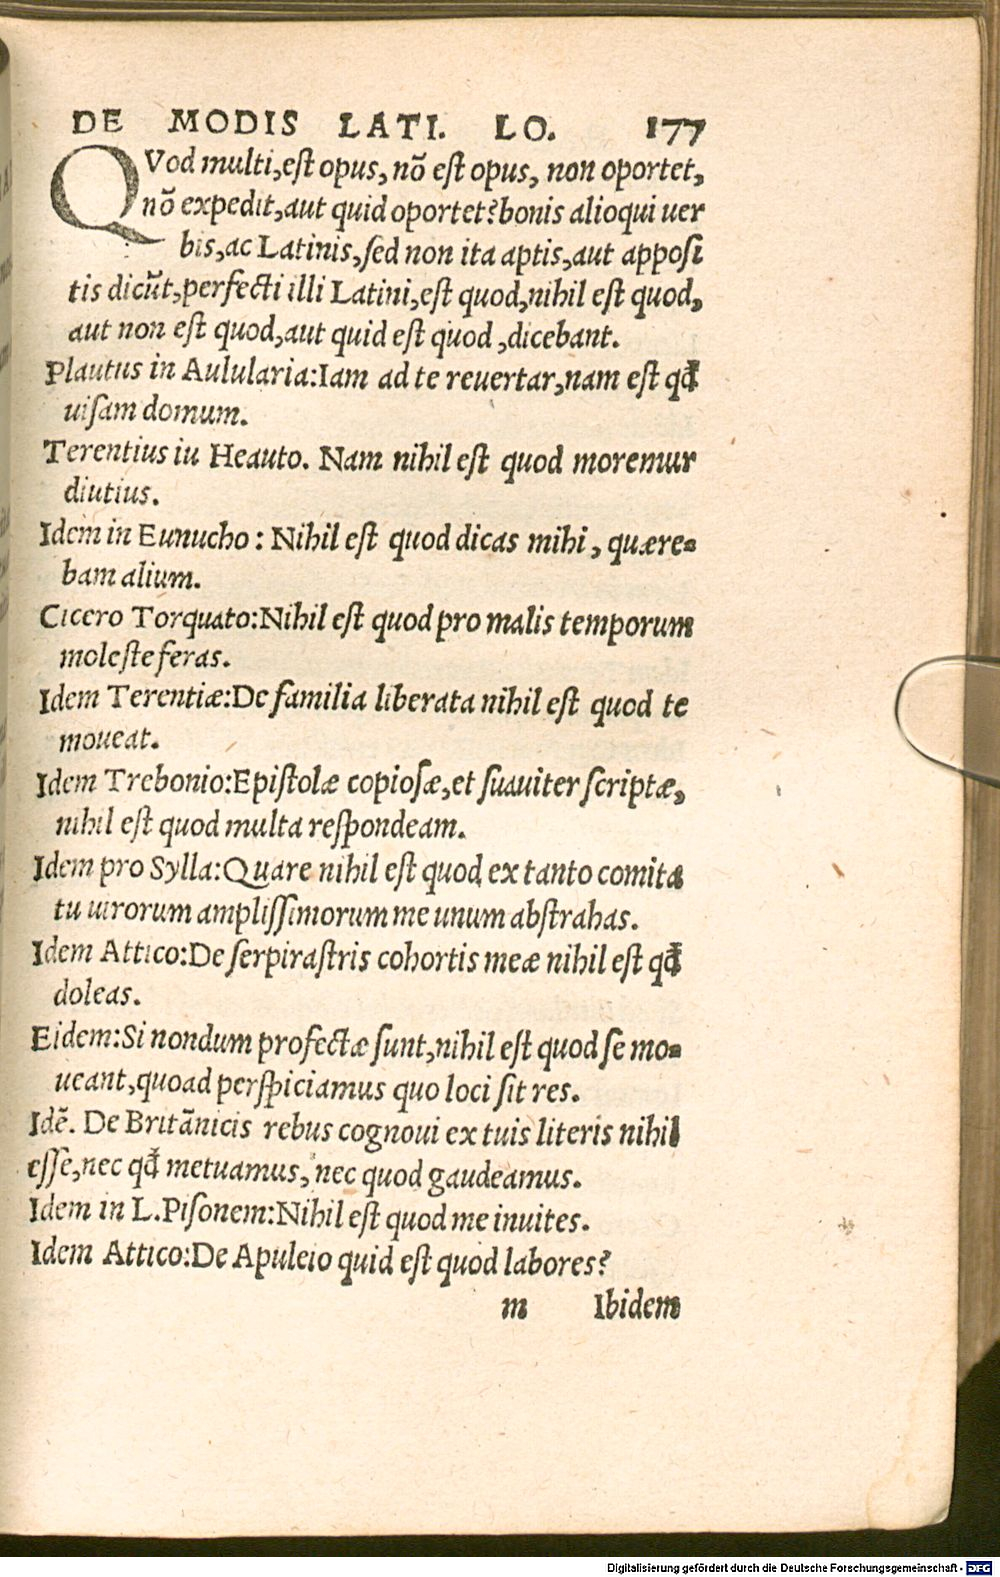 DE MODIS LATI. LO. 177
QVod multi, est opus, nõ est opus, non oportet,
nõ expedit, aut quid oportet? bonis alioqui uer
bis, ac Latinis, sed non ita aptis, aut apposi
tis dicũt, perfecti illi Latini, est quod, nihil est quod,
aut non est quod, aut quid est quod, dicebant.
Plautus in Aulularia: Iam ad te reuertar, nam est qđ
uisam domum.
Terentius iu Heauto. Nam nihil est quod moremur
diutius.
Idem in Eunucho: Nihil est quod dicas mihi, quære-
bam alium.
Cicero Torquato: Nihil est quod pro malis temporum
moleste feras.
Idem Terentiæ: De familia liberata nihil est quod te
moueat.
Idem Trebonio: Epistolæ copiosæ, et suauiter scriptæ,
nihil est quod multa respondeam.
Idem pro Sylla: Quare nihil est quod ex tanto comita
tu uirorum amplissimorum me unum abstrahas.
Idem Attico: De serpirastris cohortis meæ nihil est qđ
doleas.
Eidem: Si nondum profectæ sunt, nihil est quod se mo-
ueant, quoad perspiciamus quo loci sit res.
Idẽ. De Britãnicis rebus cognoui ex tuis literis nihil
esse, nec qđ metuamus, nec quod gaudeamus.
Idem in L. Pisonem: Nihil est quod me inuites.
Idem Attico: De Apuleio quid est quod labores?
m Ibidem
Digitalisierung gefördert durch die Deutsche Forschungsgemeinschaft - DFG